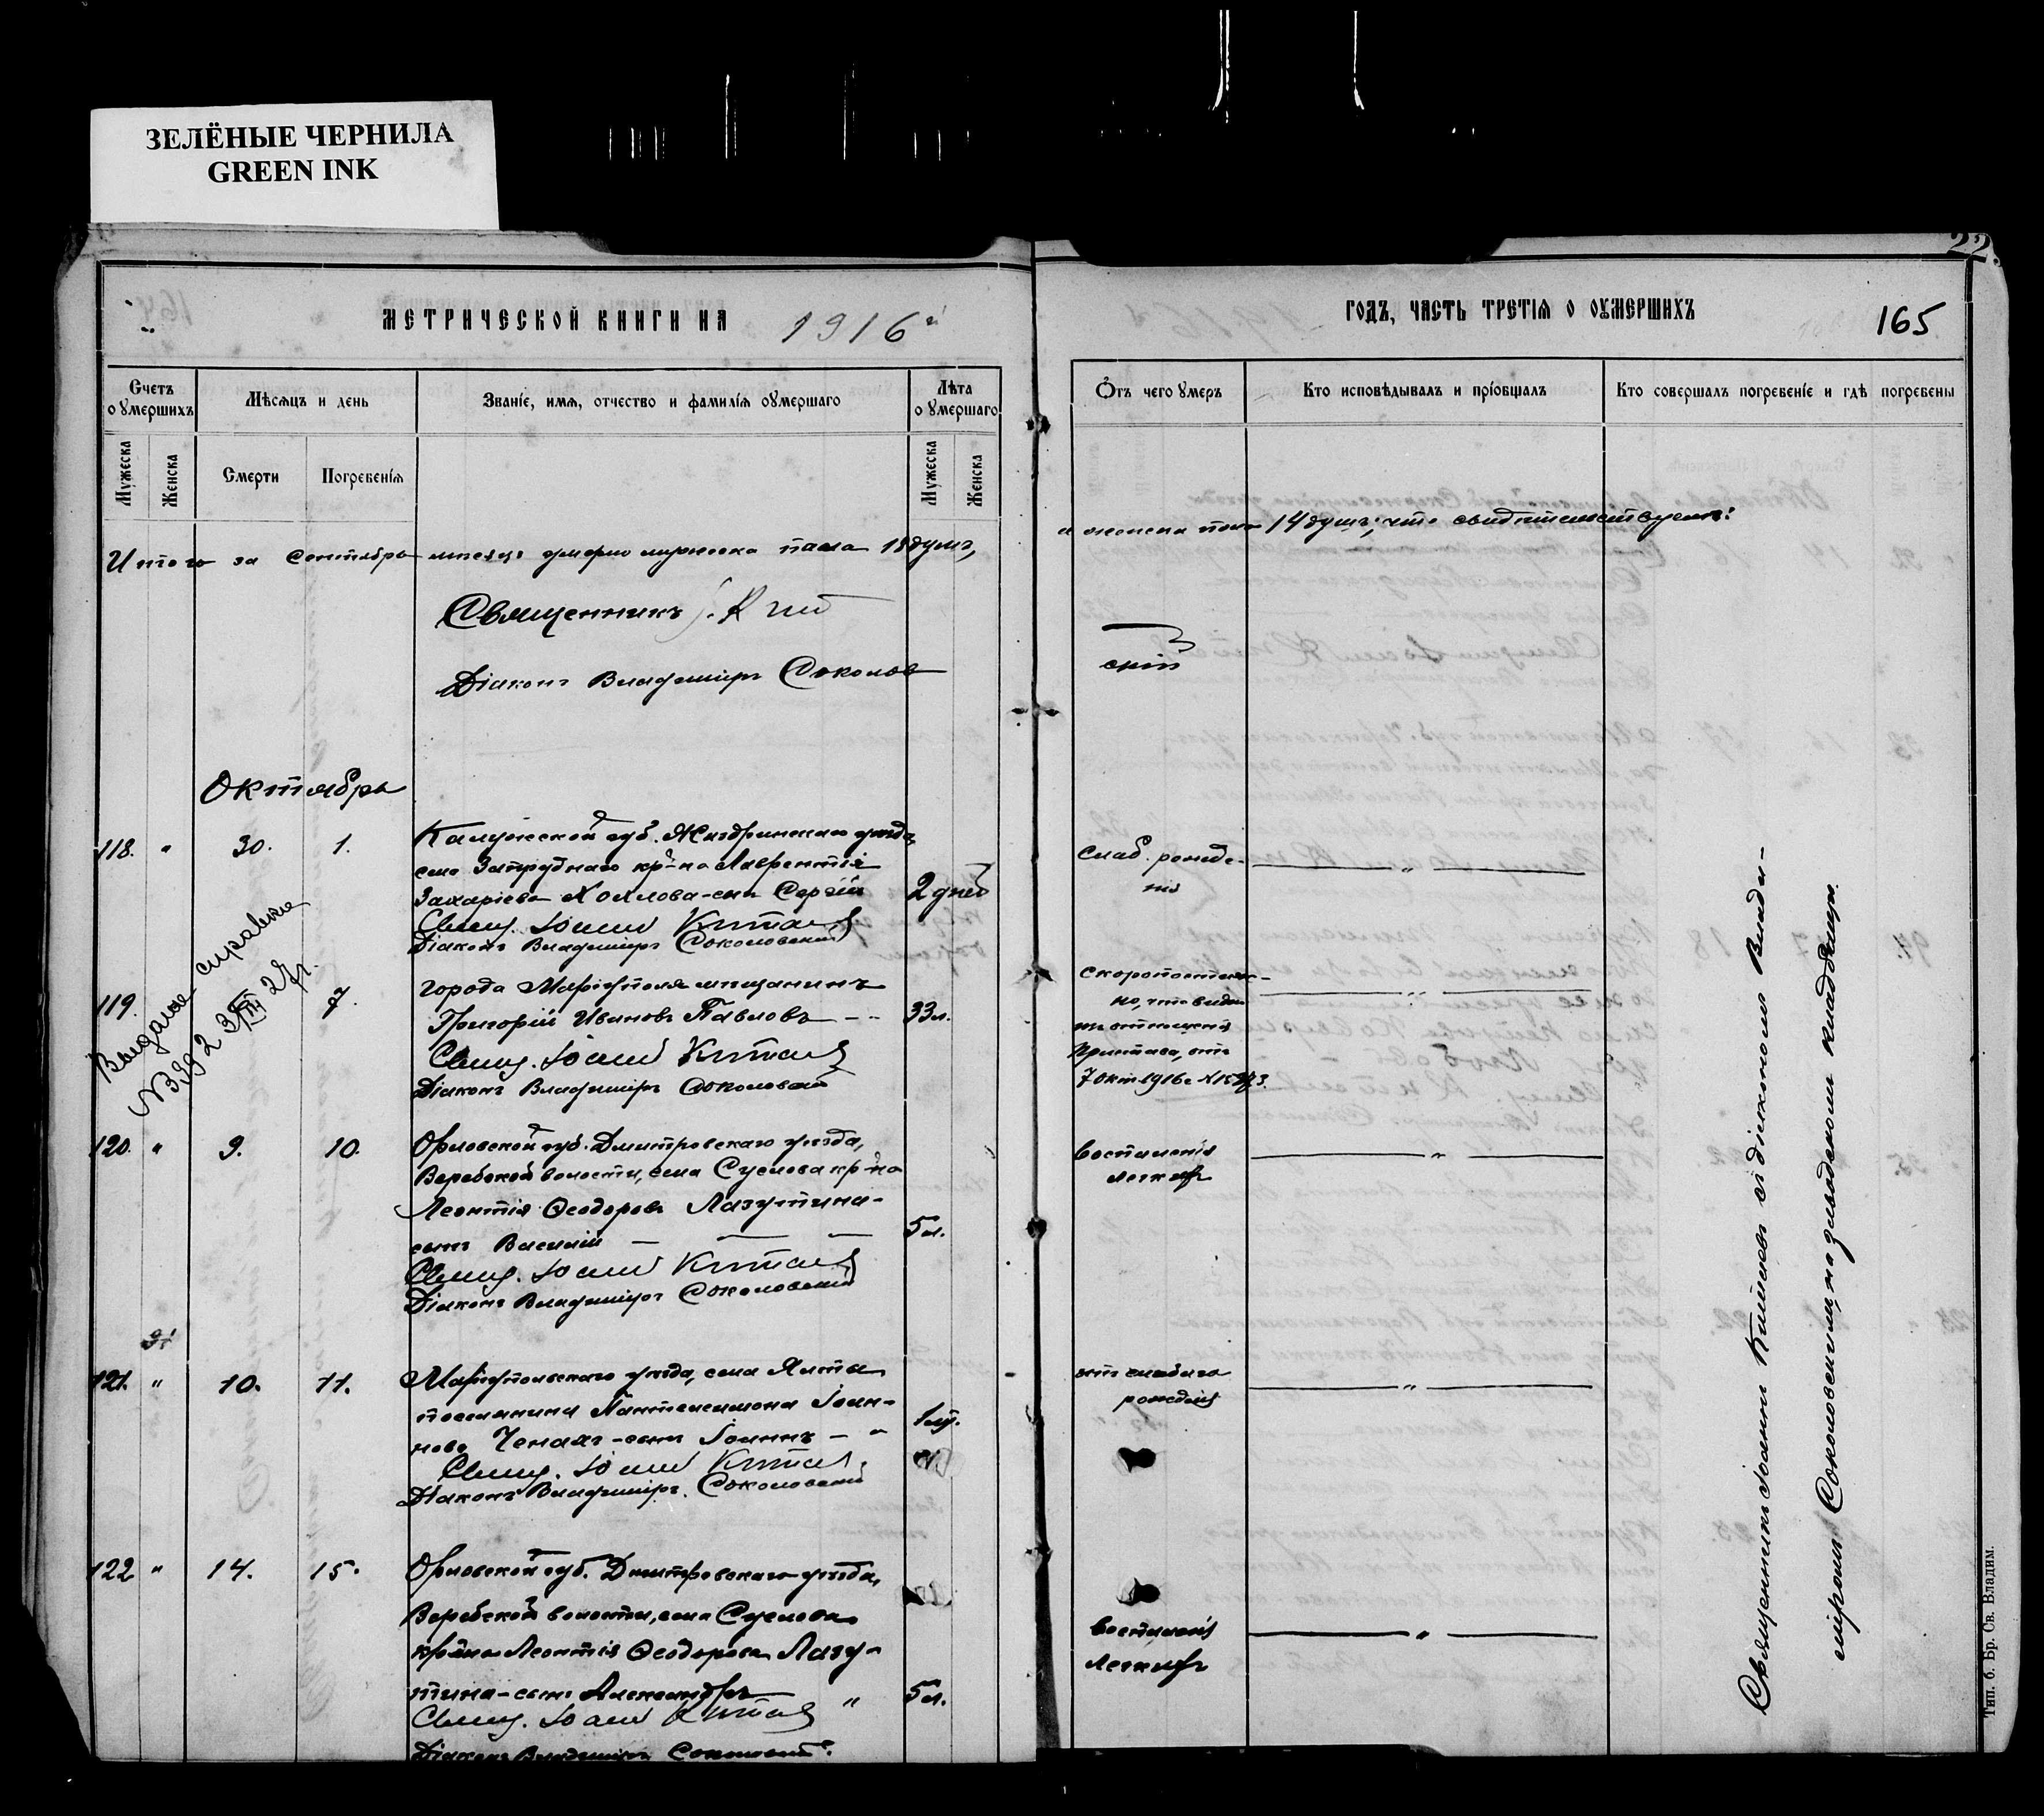 ЗЕЛЁНЫЕ ЧЕРНИЛА
GREEN INK
22.
МЕТРИЧЕСКОЙ КНИГИ НА 1916
ГОДЪ, ЧАСТЬ ТРЕТІЯ О ОУМЕРШИХЪ
165
Счетъ оумершихъ
Мѣсяцъ и день
Званіе, имя, отчество и фамилія оумершаго
Лѣта оумершаго
Отъ чего умеръ
Кто исповѣдывалъ и пріобщалъ
Кто совершалъ погребеніе и гдѣ погребены
Мужеска
Женска
Смерти
Погребенія
Мужеска
Женска
Итого за Сентябрь мѣсяцъ умерло мужеска пола 18 душъ,
а женска пола 14 душъ; что свидѣтельствуемъ:
Священникъ І. Кит
Діаконъ Владиміръ Соколов
скій
Октябрь
118. " 30. 1.
Калужской губ. Жиздринскаго уѣзда,
села Запруднаго кр-на Лаврентія
Захаріева Хохлова-сын Сергій
2 дней
Свящ. Іоаннъ Китаев
Діаконъ Владиміръ Соколовскій
Слаб. рожде-
нія
Выдана справка
119. 7.
города Маріуполя мѣщанинъ
Григорій Ивановъ Павловъ
33 л.
Свящ. Іоаннъ Китаев
Діаконъ Владиміръ Соколовскій
скоропостиж-
но, что видно
изъ отношенія
Пристава, отъ
7 окт. 1916 г. №
120. " 9. 10.
Орловской губ. Дмитровскаго уѣзда,
Веребской волости, села Суслова кр-на
Леонтія Ѳеодорова Лазутина-
сынъ Василій
5 л.
Свящ. Іоаннъ Китаев
Діаконъ Владиміръ Соколовскій
воспаленія
легкихъ
121. " 10. 11.
Маріупольскаго уѣзда, села Ялты
поселянина Пантелеимона Іоан-
нова -сынъ Іоаннъ
Свящ. Іоаннъ Китаев
Діаконъ Владиміръ Соколовскій
отъ слабаго
рожденія
122 " 14. 15.
Орловской губ. Дмитровскаго уѣзда,
Веребской волости, села Суслова
кр-на Леонтія Ѳеодорова Лазу-
тина-сынъ Александръ "
5 л.
Свящ. Іоаннъ Китаев
Діаконъ Владиміръ Соколовскій
воспаленія
легкихъ
Священникъ Іоаннъ Китаевъ съ діакономъ Влади-
міромъ Соколовскимъ, на заводскомъ кладбищѣ.
Тип. б. Бр. Св. Владим.